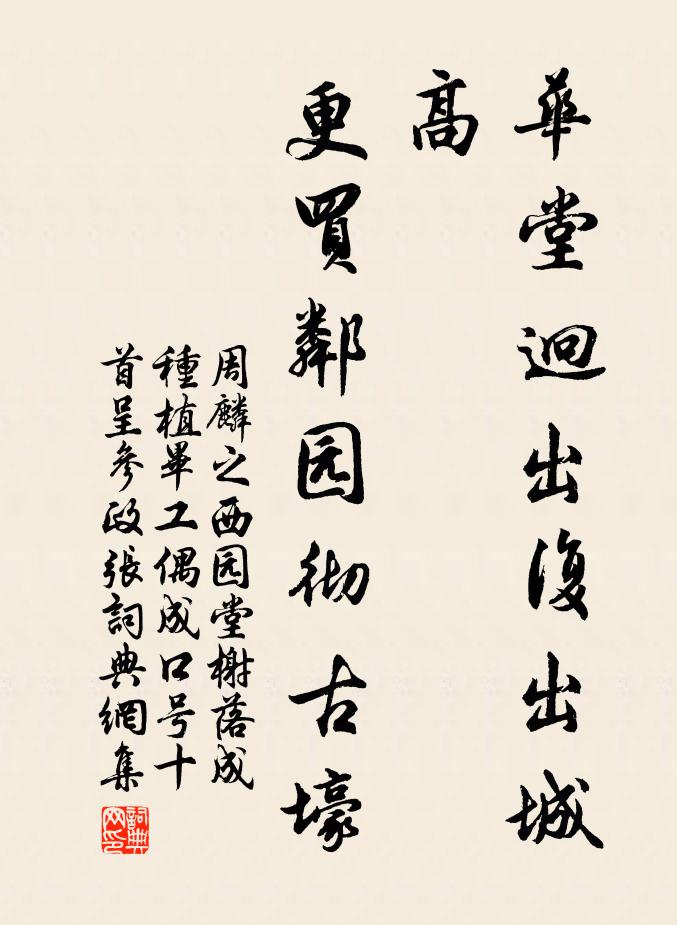 華堂迥出復出城
高
更買鄰园彻古壕
周麟之西园堂榭落成
種植畢工偶成口号十
首呈參政張詞典網集
詞典网印